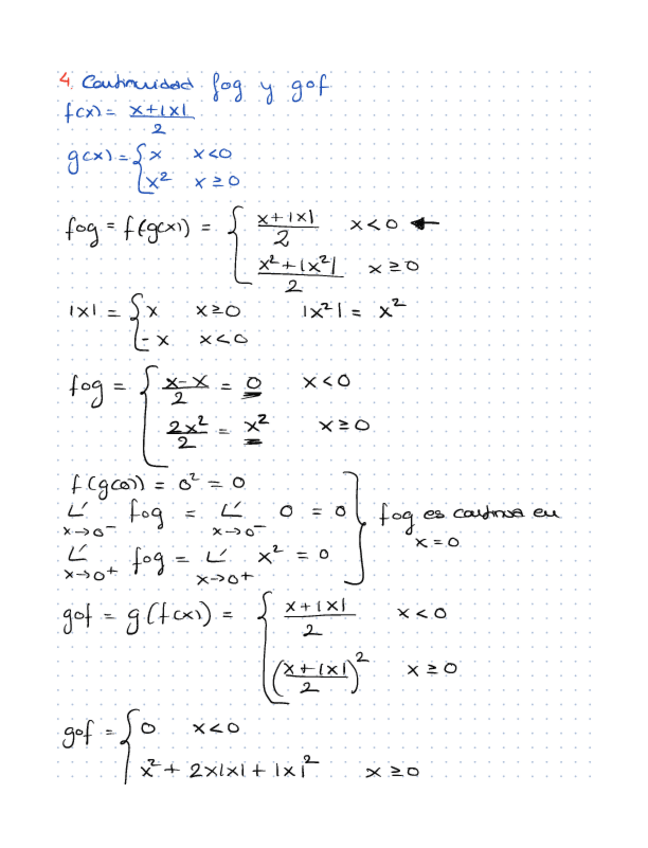 4. Continuidad fog y gof
f(x) = x+|x| / 2
g(x) = { x x<0
x² x≥0
fog = f(g(x)) = { x+|x| / 2 x<0 ←
x²+|x²| / 2 x≥0
|x| = { x x≥0 |x²| = x²
-x x<0
fog = { x-x / 2 = 0 x<0
2x² / 2 = x² x≥0
f(g(0)) = 0² = 0
Lí x→0⁻ fog = Lí x→0⁻ 0 = 0
Lí x→0⁺ fog = Lí x→0⁺ x² = 0
} fog es continua en x=0
gof = g(f(x)) = { x+|x| / 2 x<0
(x+|x| / 2)² x≥0
gof = { 0 x<0
x² + 2x|x| + |x|² x≥0